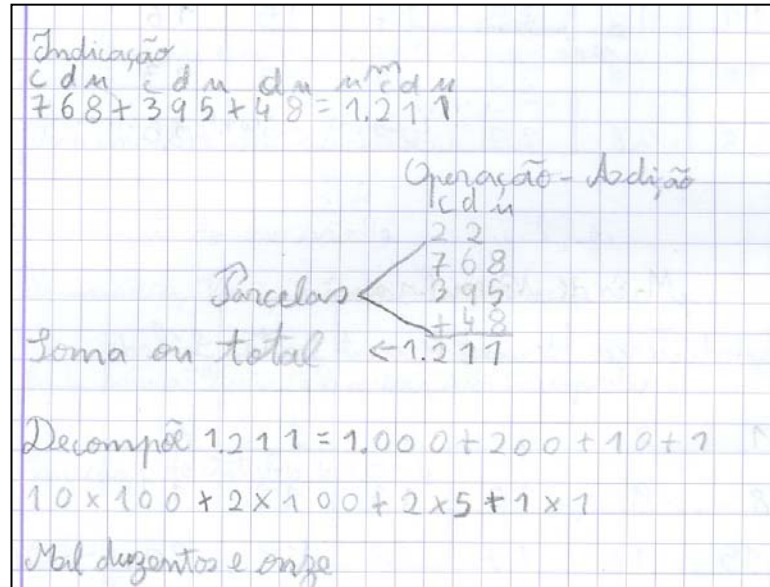 Indicação
c d u c d u d u u m c d u
768+395+48=1.211
Operação - Adição
c d u
2 2
7 6 8
Parcelas 3 9 5
+ 4 8
Soma ou total ← 1.211
Decompõe 1.211 = 1.000 + 200 + 10 + 1
10 x 100 + 2 x 100 + 2 x 5 + 1 x 1
Mil duzentos e onze